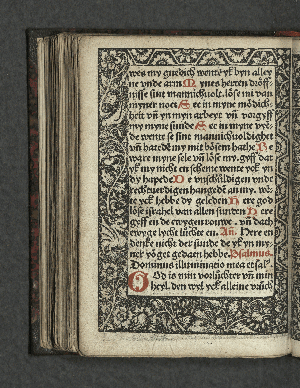 wes my gnedich wente yk byn alley
ne vnde arm Mynes herten dröff-
nisse sint mannichuolt. löse mi van
myner noet. See in myne mödich-
heit vñ yn myn arbeyt vñ vorgyff
my myne sunde See in myne vyē-
de wente se sint mannichuoldighet
vñ hatedē my mit bösem hathe Be
ware myne sele vñ löse my. gyff dat
yk my nicht en scheme wente yck yn
dy hapede De vnschüldigen vnde
rechtuerdigen hangedē an my. wē-
te yck hebbe dy geleden Here god
löse israhel van allen sunden Here
gyff en de ewygen rouwe. vñ dath
ewyge lycht lüchte en. Añ. Here en
dencke nicht der sunde de yk yn my-
ner yöget gedaen hebbe. Psalmus.
Dominus illuminatio mea et sal⁹
God is min vorlüchter vñ min
heyl. den wyl yck alleine vrüch